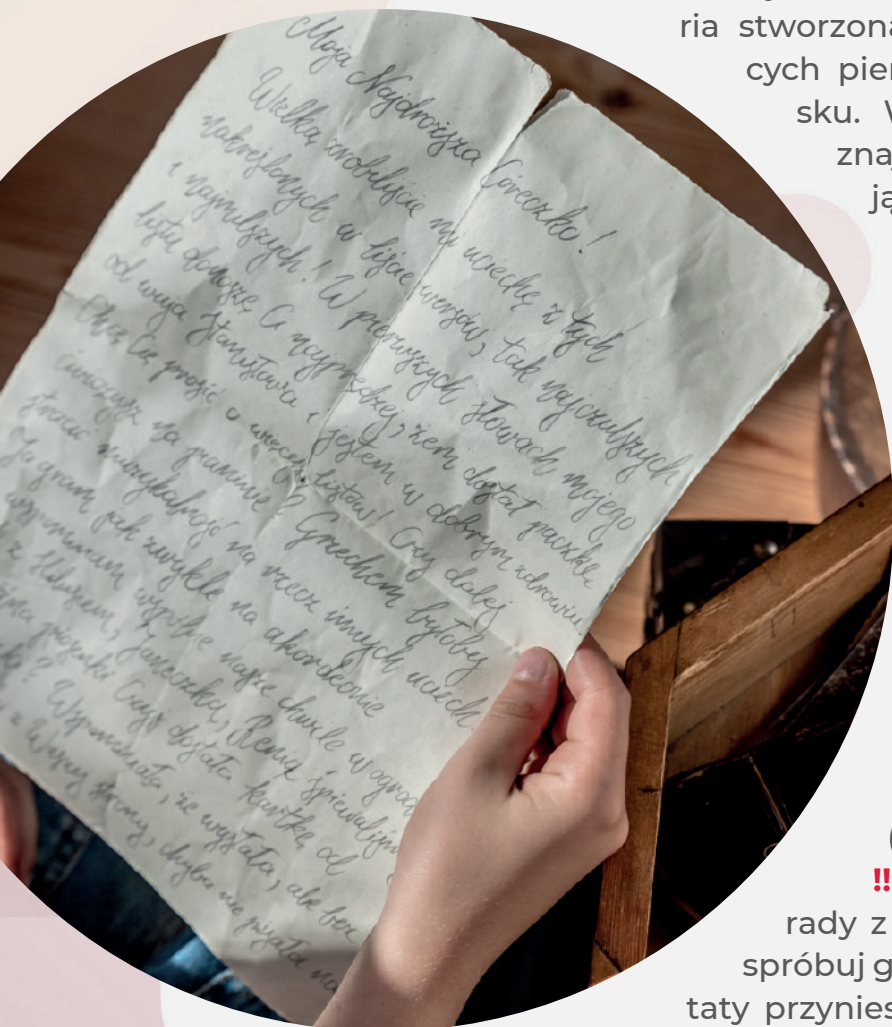 ria stworzona
cych pier
sku. W
zna
ją
Moja Najdroższa Córeczko!
Wielką zrobiliście mi uciechę z tych
nakreślonych w liście wersów, tak najczulszych
i najmilszych! W pierwszych słowach mojego
listu donoszę Ci najprędzej, żem dostał paczkę
od wuja Stanisława i jestem w dobrym zdrowiu.
Chcę Cię prosić o więcej listów! Czy dalej
ćwiczysz na pianinie? Grzechem byłoby
stracić muzykalność na rzecz innych uciech.
Ja gram jak zwykle na akordeonie
wspominam wspólne nasze chwile w ogrodzie
z Janeczką, Renią śpiewaliśmy
piosenki. Czyś dostała kartkę od
? Wspominała, że wysłała, ale bez
z Waszej strony, chyba nie pisała na
!!
rady z
spróbuj g
taty przynies